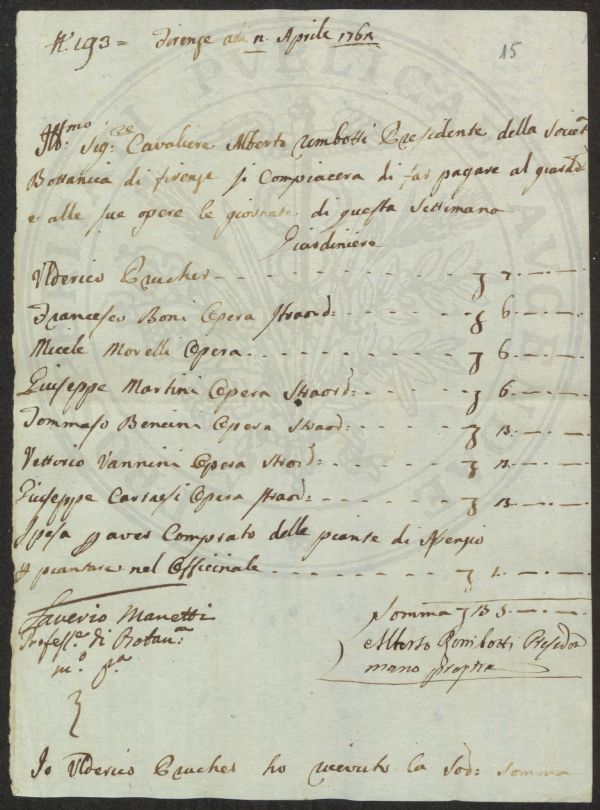 N.º 193 = Firenze adì 12. Aprile 1762
15
Ill.mo Sig.re Cavaliere Alberto Rimbotti Presidente della Societ.
Bottanica di firenze si Compiacerà di far pagare al giard.
e alle sue opere le giornate di questa Settimana
Giardiniere
Ulderico Prucher
Francesco Boni Opera straord: 6.
Micele Morelli Opera 6.
Giuseppe Martini Opera Straord: 6.
Tommaso Bencini Opera Straord: 13.
Vettorio Vannini Opera strord: 13.
Giuseppe Cartaesi Opera straord: 13.
Spesa p aver Comprato delle piante di
p piantare nel Officinale
Saverio Manetti
Profess.e di Botan.ca
m.o p.a
Somma
Alberto Rimbotti Presid.
mano propria
Io Ulderico Prucher ho ricevuto la sod: somma